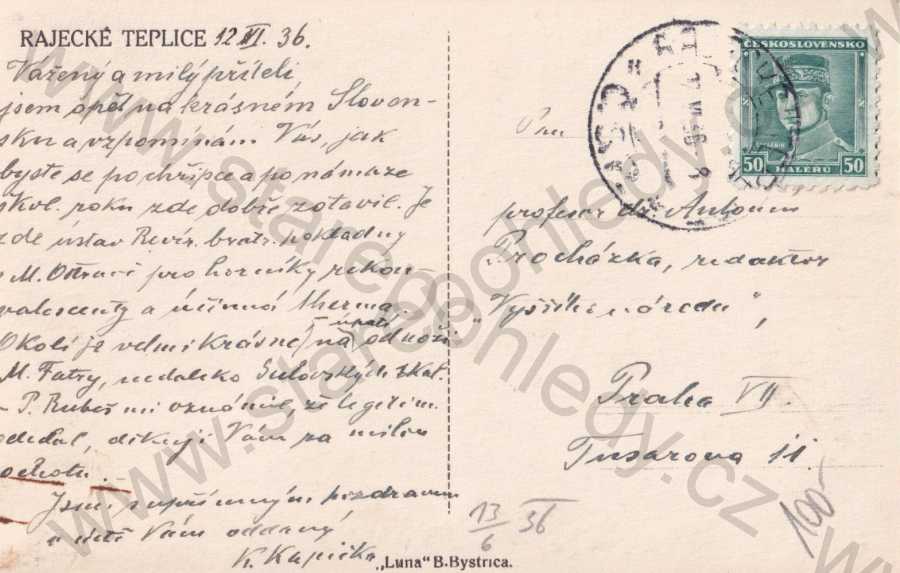 RAJECKÉ TEPLICE 12 VI. 36.
Vařený a milý příteli,
jsem opět na krásném Sloven-
sku a vzpomínám Vás, jak
byste se po chřipce a po námaze
škol. roku zde dobře zotavil. Je
zde ústav Revír. bratr. pokladny
v M. Ostravě pro horníky, rekon-
valescenty a účinná therma.
Okolí je velmi krásné, na úpatí odnoží
M. Fatry, nedaleko Sulovských skal.
- P. Rubeš mi oznámil, že legitim.
odeslal, děkuji Vám za milou
ochotu. -
Jsem s upřímným pozdravem
a úctě Vám oddaný
K. Kapička
"Luna" B. Bystrica.
ČESKOSLOVENSKO
50 HALÉŘŮ 50
Pan
profesor dr. Antonín
Procházka, redaktor
"Vyššího národu",
Praha VII.
Tusarova 11.
13/6 36
100-
www.starepohledy.cz